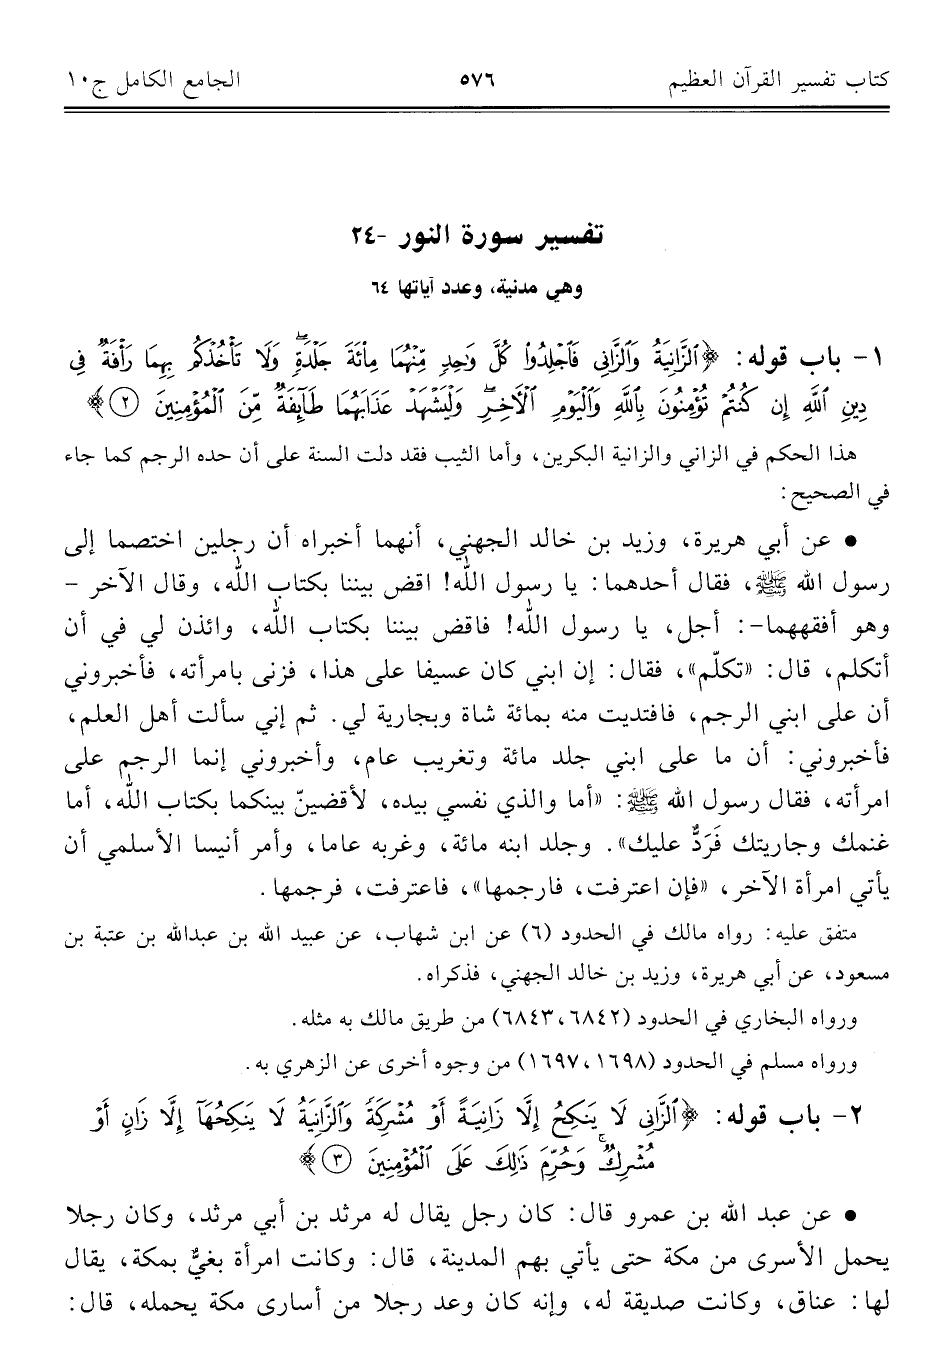 كتاب تفسير القرآن العظيم ٥٧٦ الجامع الكامل ج١٠
تفسير سورة النور -٢٤
وهي مدنية، وعدد آياتها ٦٤
١- باب قوله: ﴿ٱلزَّانِيَةُ وَٱلزَّانِى فَٱجْلِدُوا۟ كُلَّ وَٰحِدٍ مِّنْهُمَا مِا۟ئَةَ جَلْدَةٍ ۖ وَلَا تَأْخُذْكُم بِهِمَا رَأْفَةٌ فِى
دِينِ ٱللَّهِ إِن كُنتُمْ تُؤْمِنُونَ بِٱللَّهِ وَٱلْيَوْمِ ٱلْءَاخِرِ ۖ وَلْيَشْهَدْ عَذَابَهُمَا طَآئِفَةٌ مِّنَ ٱلْمُؤْمِنِينَ ٢﴾
هذا الحكم في الزاني والزانية البكرين، وأما الثيب فقد دلت السنة على أن حده الرجم كما جاء
في الصحيح:
• عن أبي هريرة، وزيد بن خالد الجهني، أنهما أخبراه أن رجلين اختصما إلى
رسول الله ﷺ، فقال أحدهما: يا رسول الله! اقض بيننا بكتاب الله، وقال الآخر -
وهو أفقههما-: أجل، يا رسول الله! فاقض بيننا بكتاب الله، وائذن لي في أن
أتكلم، قال: «تكلّم»، فقال: إن ابني كان عسيفا على هذا، فزنى بامرأته، فأخبروني
أن على ابني الرجم، فافتديت منه بمائة شاة وبجارية لي. ثم إني سألت أهل العلم،
فأخبروني: أن ما على ابني جلد مائة وتغريب عام، وأخبروني إنما الرجم على
امرأته، فقال رسول الله ﷺ: «أما والذي نفسي بيده، لأقضينّ بينكما بكتاب الله، أما
غنمك وجاريتك فَرَدٌّ عليك». وجلد ابنه مائة، وغربه عاما، وأمر أنيسا الأسلمي أن
يأتي امرأة الآخر، «فإن اعترفت، فارجمها»، فاعترفت، فرجمها.
متفق عليه: رواه مالك في الحدود (٦) عن ابن شهاب، عن عبيد الله بن عبدالله بن عتبة بن
مسعود، عن أبي هريرة، وزيد بن خالد الجهني، فذكراه.
ورواه البخاري في الحدود (٦٨٤٢، ٦٨٤٣) من طريق مالك به مثله.
ورواه مسلم في الحدود (١٦٩٨، ١٦٩٧) من وجوه أخرى عن الزهري به.
٢- باب قوله: ﴿ٱلزَّانِى لَا يَنكِحُ إِلَّا زَانِيَةً أَوْ مُشْرِكَةً وَٱلزَّانِيَةُ لَا يَنكِحُهَآ إِلَّا زَانٍ أَوْ
مُشْرِكٌ ۚ وَحُرِّمَ ذَٰلِكَ عَلَى ٱلْمُؤْمِنِينَ ٣﴾
• عن عبد الله بن عمرو قال: كان رجل يقال له مرثد بن أبي مرثد، وكان رجلا
يحمل الأسرى من مكة حتى يأتي بهم المدينة، قال: وكانت امرأة بغيٌّ بمكة، يقال
لها: عناق، وكانت صديقة له، وإنه كان وعد رجلا من أسارى مكة يحمله، قال: